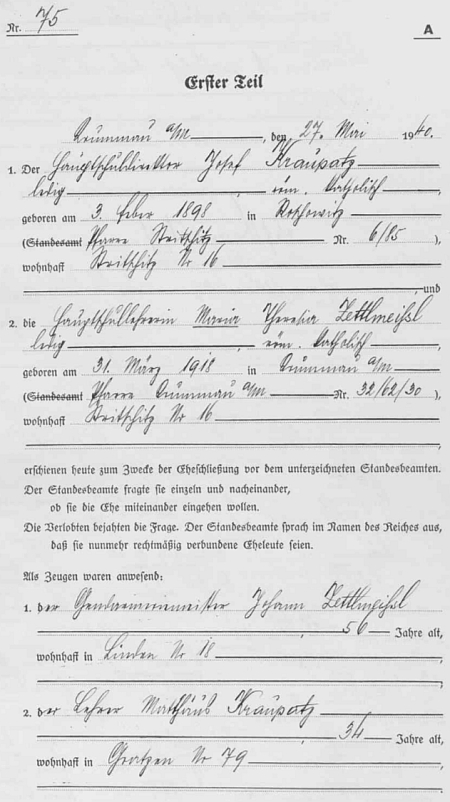 Nr. 75
A
Erster Teil
Krummau a/M, den 27. Mai 1940.
1. Der Hauptschuldirektor Josef Kraupatz
ledig, röm. katholisch
geboren am 3. Feber 1898 in Roschowitz
(Standesamt Pfarre Stritschitz Nr. 6/85),
wohnhaft Stritschitz Nr 16
, und
2. die Hauptschullehrerin Maria Theresia Zettlmeißl
ledig, röm. katholisch
geboren am 31. März 1918 in Krummau a/M
(Standesamt Pfarre Krummau a/M Nr. 32/62/30),
wohnhaft Stritschitz Nr 16
erschienen heute zum Zwecke der Eheschließung vor dem unterzeichneten Standesbeamten.
Der Standesbeamte fragte sie einzeln und nacheinander,
ob sie die Ehe miteinander eingehen wollen.
Die Verlobten bejahten die Frage. Der Standesbeamte sprach im Namen des Reiches aus,
daß sie nunmehr rechtmäßig verbundene Eheleute seien.
Als Zeugen waren anwesend:
1. der Gendarmeriemeister Johann Zettlmeißl
, 50 Jahre alt,
wohnhaft in Linden Nr 18,
2. der Lehrer Matthäus Kraupatz
, 34 Jahre alt,
wohnhaft in Gratzen Nr 79